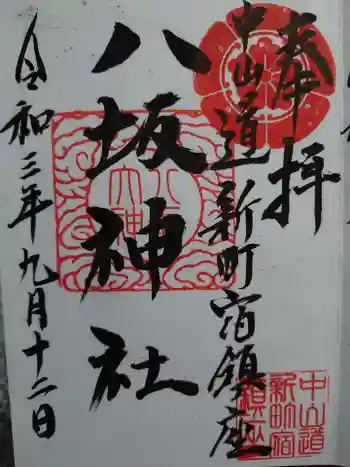 奉拝
中山道新町宿鎮座
八坂神社
令和三年九月十二日
八坂
大神
中山道
新町宿
鎮座